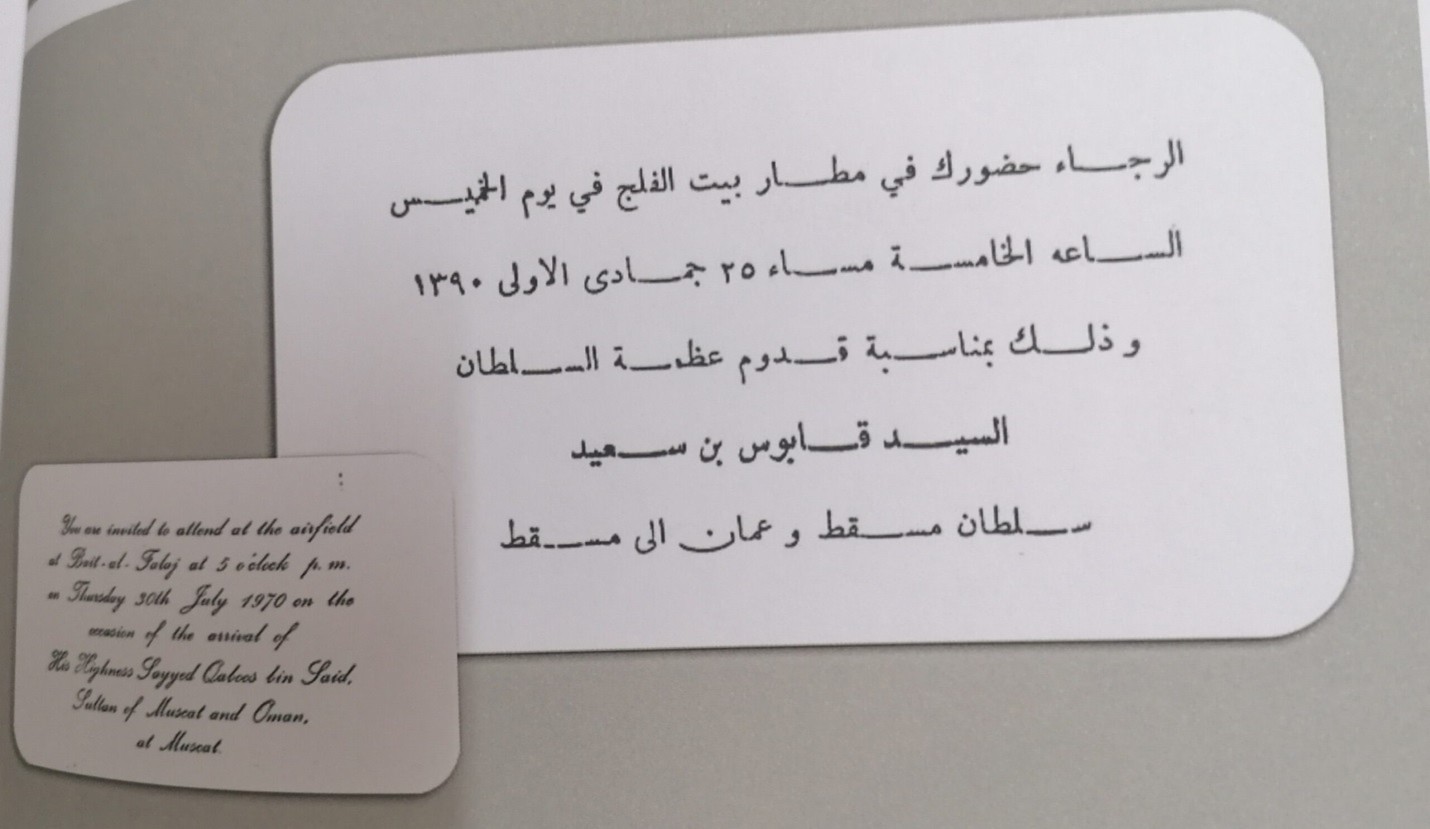 الرجاء حضورك في مطار بيت الفلج في يوم الخميس
الساعه الخامسة مساء ٢٥ جمادى الاولى ١٣٩٠
و ذلك بمناسبة قدوم عظمة السلطان
السيد قابوس بن سعيد
سلطان مسقط و عمان الى مسقط
You are invited to attend at the airfield
at Beit-al-Falaj at 5 o'clock p.m.
on Thursday 30th July 1970 on the
occasion of the arrival of
His Highness Sayyed Qaboos bin Said,
Sultan of Muscat and Oman,
at Muscat.